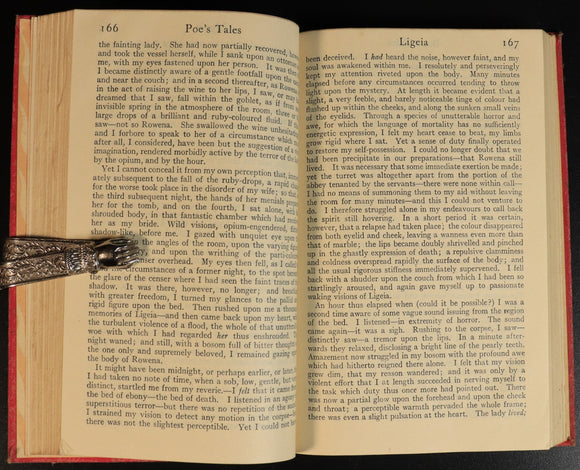 166 Poe's Tales
the fainting lady. She had now partially recovered, however,
and took the vessel herself, while I sank upon an ottoman
me, with my eyes fastened upon her person. It was then
I became distinctly aware of a gentle footfall upon the
and near the couch; and in a second thereafter, as Rowena
in the act of raising the wine to her lips, I saw, or may
dreamed that I saw, fall within the goblet, as if from
invisible spring in the atmosphere of the room, three or
large drops of a brilliant and ruby-coloured fluid. If
saw—not so Rowena. She swallowed the wine unhesitatingly
and I forbore to speak to her of a circumstance which
after all, I considered, have been but the suggestion of a
imagination, rendered morbidly active by the terror of the
by the opium, and by the hour.
Yet I cannot conceal it from my own perception that,
ately subsequent to the fall of the ruby-drops, a rapid
for the worse took place in the disorder of my wife; so
the third subsequent night, the hands of her menials
her for the tomb, and on the fourth, I sat alone,
shrouded body, in that fantastic chamber which had
her as my bride. Wild visions, opium-engendered,
shadow-like, before me. I gazed with unquiet eye upon
in the angles of the room, upon the varying
and upon the writhing of the parti-coloured
overhead. My eyes then fell, as I
circumstances of a former night, to the spot
the glare of the censer where I had seen the faint traces of
shadow. It was there, however, no longer; and
with greater freedom, I turned my glances to the pallid
rigid figure upon the bed. Then rushed upon me a thousand
memories of Ligeia—and then came back upon my heart,
the turbulent violence of a flood, the whole of that
woe with which I had regarded her thus enshrouded. The
night waned; and still, with a bosom full of bitter thoughts
the one only and supremely beloved, I remained gazing
the body of Rowena.
It might have been midnight, or perhaps earlier, or later,
I had taken no note of time, when a sob, low, gentle, but
distinct, startled me from my reverie.—I felt that it came
the bed of ebony—the bed of death. I listened in an agony
superstitious terror—but there was no repetition of the
I strained my vision to detect any motion in the corpse—
there was not the slightest perceptible. Yet I could not have
Ligeia 167
been deceived. I had heard the noise, however faint, and my
soul was awakened within me. I resolutely and perseveringly
kept my attention riveted upon the body. Many minutes
elapsed before any circumstances occurred tending to throw
light upon the mystery. At length it became evident that a
slight, a very feeble, and barely noticeable tinge of colour had
flushed up within the cheeks, and along the sunken small veins
of the eyelids. Through a species of unutterable horror and
awe, for which the language of mortality has no sufficiently
energetic expression, I felt my heart cease to beat, my limbs
grow rigid where I sat. Yet a sense of duty finally operated
to restore my self-possession. I could no longer doubt that we
had been precipitate in our preparations—that Rowena still
lived. It was necessary that some immediate exertion be made;
yet the turret was altogether apart from the portion of the
abbey tenanted by the servants—there were none within call—
I had no means of summoning them to my aid without leaving
the room for many minutes—and this I could not venture to
do. I therefore struggled alone in my endeavours to call back
the spirit still hovering. In a short period it was certain,
however, that a relapse had taken place; the colour disappeared
from both eyelid and cheek, leaving a wanness even more than
that of marble; the lips became doubly shrivelled and pinched
up in the ghastly expression of death; a repulsive clamminess
and coldness overspread rapidly the surface of the body; and
all the usual rigorous stiffness immediately supervened. I fell
back with a shudder upon the couch from which I had been so
startlingly aroused, and again gave myself up to passionate
waking visions of Ligeia.
An hour thus elapsed when (could it be possible?) I was a
second time aware of some vague sound issuing from the region
of the bed. I listened—in extremity of horror. The sound
came again—it was a sigh. Rushing to the corpse, I saw—
distinctly saw—a tremor upon the lips. In a minute after-
wards they relaxed, disclosing a bright line of the pearly teeth.
Amazement now struggled in my bosom with the profound awe
which had hitherto reigned there alone. I felt that my vision
grew dim, that my reason wandered; and it was only by a
violent effort that I at length succeeded in nerving myself to
the task which duty thus once more had pointed out. There
was now a partial glow upon the forehead and upon the cheek
and throat; a perceptible warmth pervaded the whole frame;
there was even a slight pulsation at the heart. The lady lived;